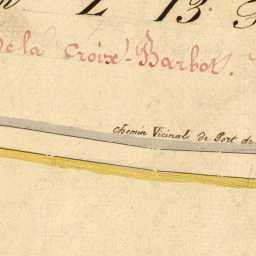 L 13.
de la Croix-Barbot.
chemin Vicinal de Port de